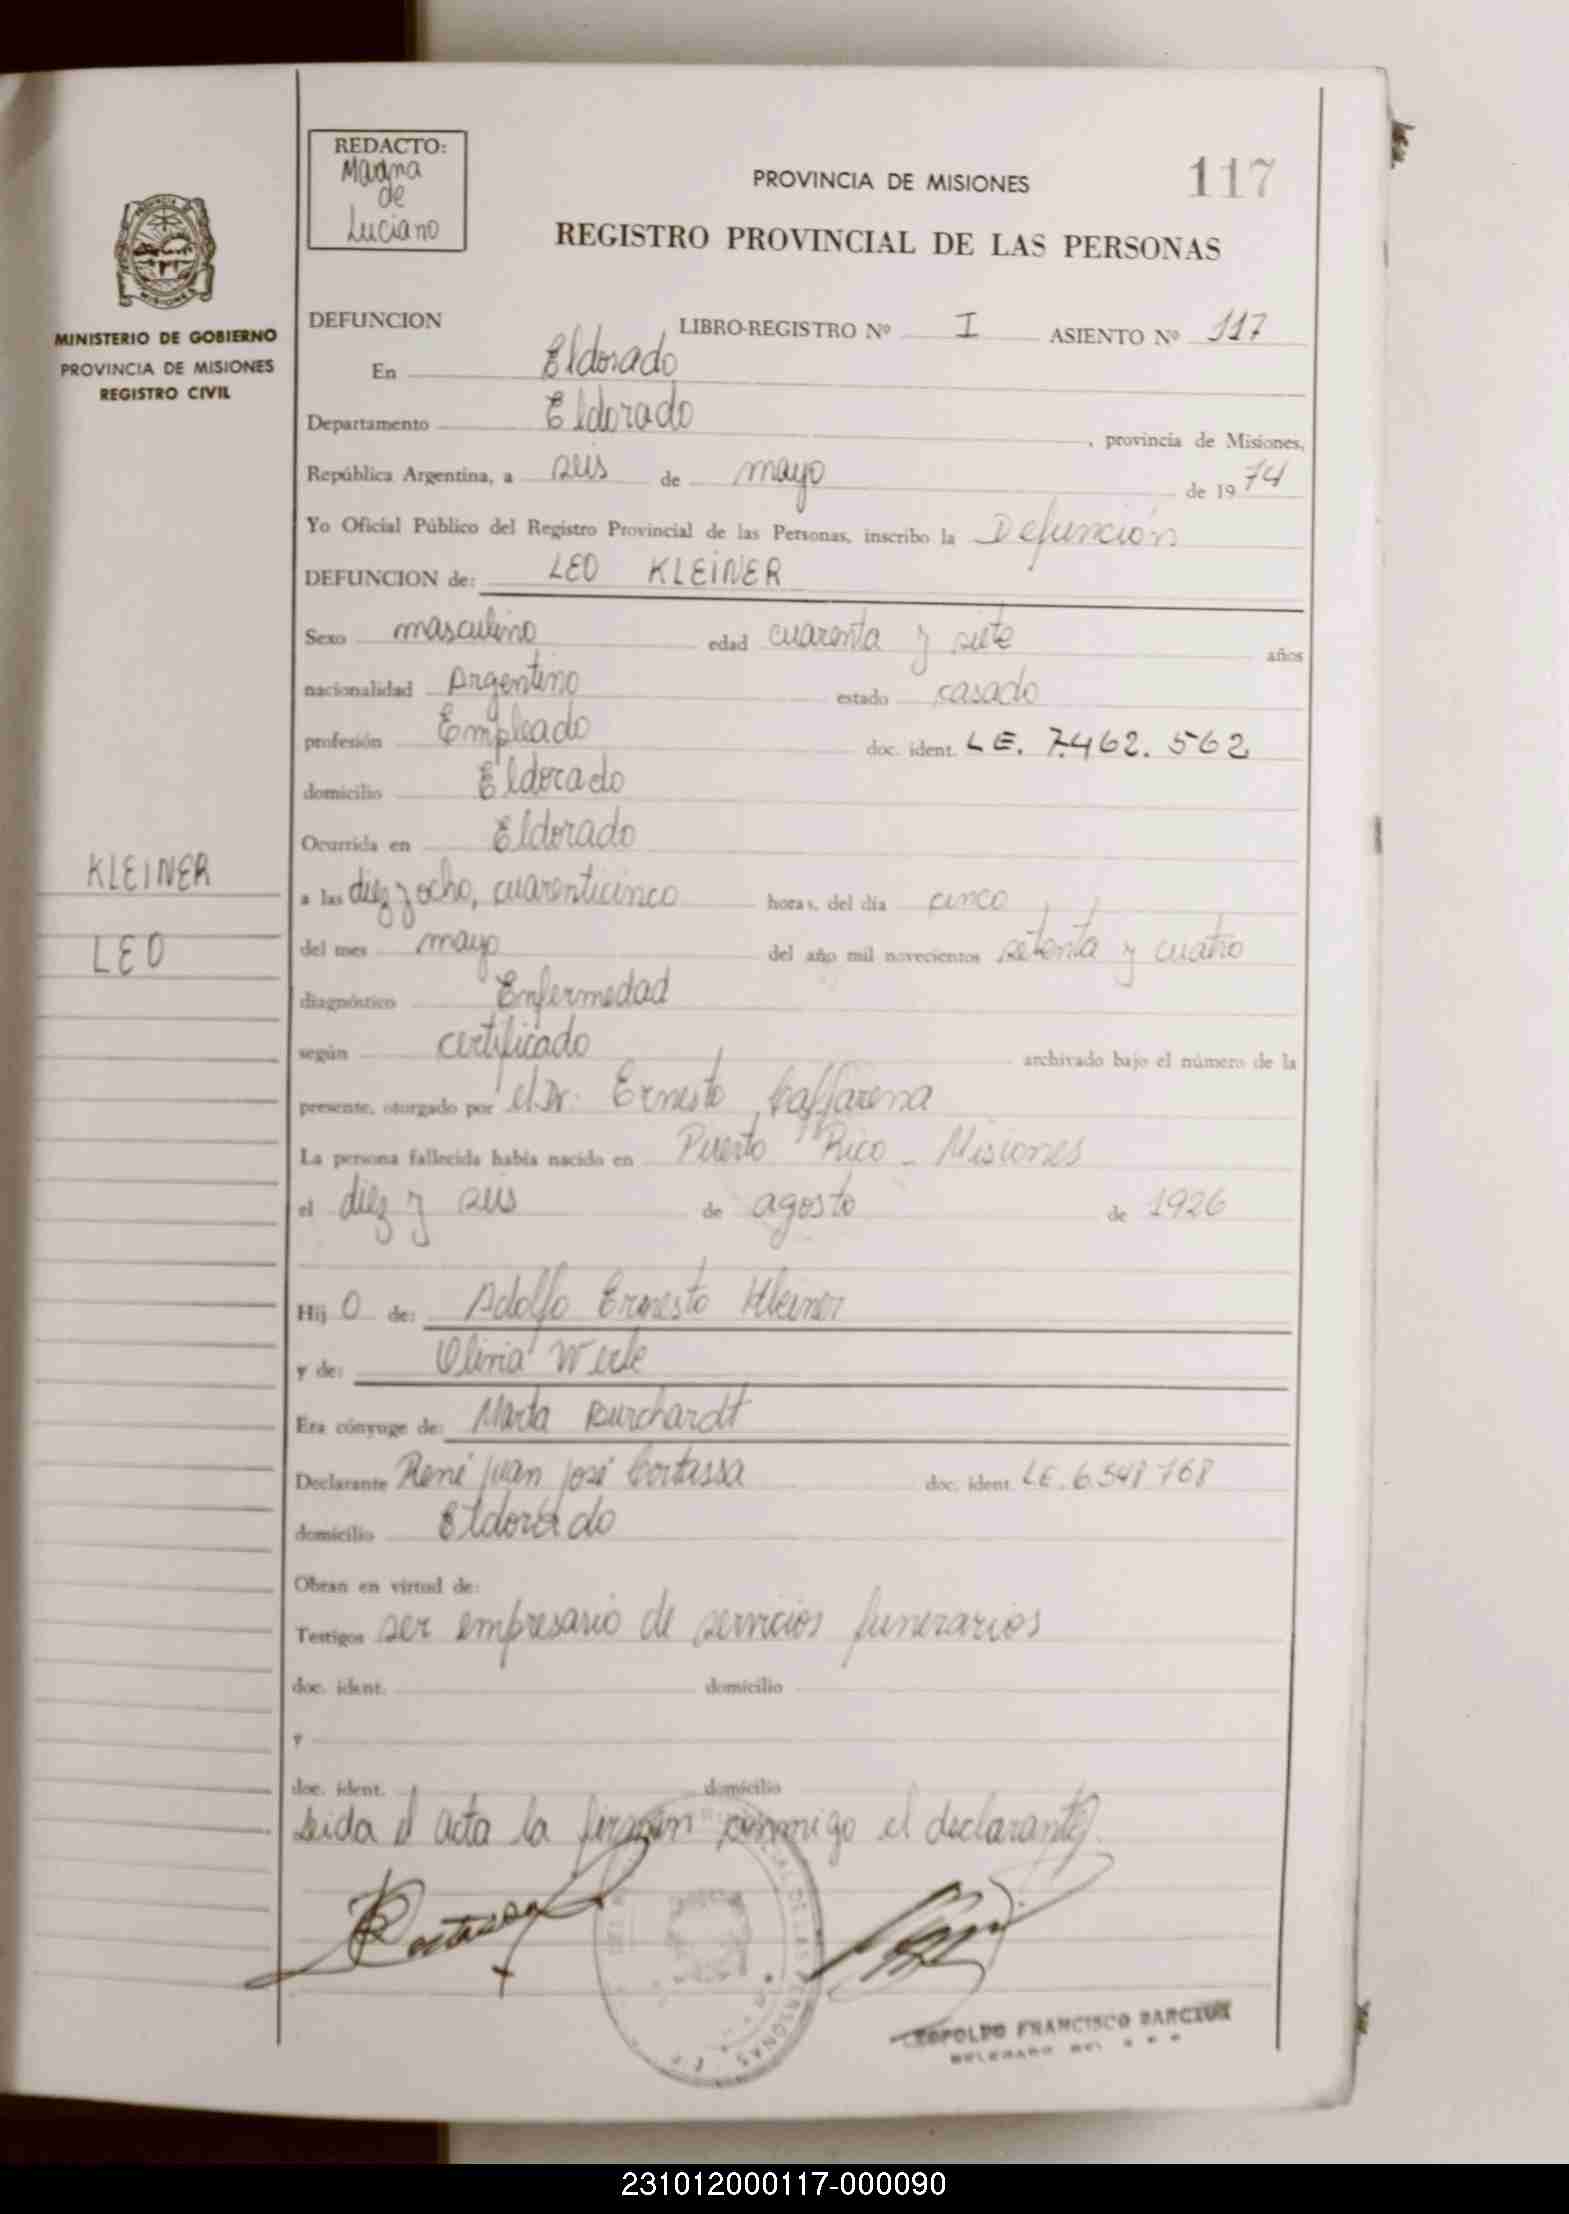 REDACTO:
Marina
de
Luciano
PROVINCIA DE MISIONES
117
REGISTRO PROVINCIAL DE LAS PERSONAS
MINISTERIO DE GOBIERNO
PROVINCIA DE MISIONES
REGISTRO CIVIL
DEFUNCION LIBRO-REGISTRO Nº I ASIENTO Nº 117
En Eldorado
Departamento Eldorado, provincia de Misiones,
República Argentina, a seis de mayo de 1974
Yo Oficial Público del Registro Provincial de las Personas, inscribo la Defunción
DEFUNCION de: LEO KLEINER
Sexo masculino edad cuarenta y siete años
nacionalidad Argentino estado casado
profesión Empleado doc. ident. LE. 7.462.562
domicilio Eldorado
Ocurrida en Eldorado
KLEINER
a las diez y ocho, cuarenticinco horas, del día cinco
LEO
del mes mayo del año mil novecientos setenta y cuatro
diagnóstico Enfermedad
según certificado archivado bajo el número de la
presente, otorgado por el Dr. Ernesto Caffarena
La persona fallecida había nacido en Puerto Rico - Misiones
el diez y seis de agosto de 1926
Hij o de: Adolfo Ernesto Kleiner
y de: Olinia Werle
Era cónyuge de: Marta Burchardt
Declarante René Juan José Cortassa doc. ident. LE. 6.548768
domicilio Eldorado
Obran en virtud de:
Testigos ser empresario de servicios funerarios
doc. ident. domicilio
y
doc. ident. domicilio
Leida el acta la firman conmigo el declarante
Cortassa
LEOPOLDO FRANCISCO
DELEGADO DEL
231012000117-000090